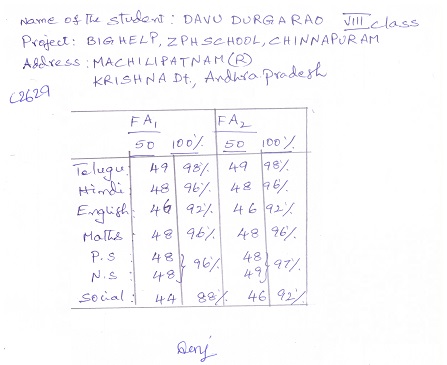 Name of the student : DAVU DURGA RAO VIII class
Project : BIG HELP, ZPH SCHOOL, CHINNAPURAM
Address : MACHILIPATNAM (R)
KRISHNA Dt., Andhra Pradesh
C2629
FA1 FA2
50 100% 50 100%
Telugu : 49 98% 49 98%
Hindi : 48 96% 48 96%
English : 46 92% 46 92%
Maths : 48 96% 48 96%
P.S : 48 } 96% 48 } 97%
N.S : 48 49
Social : 44 88% 46 92%